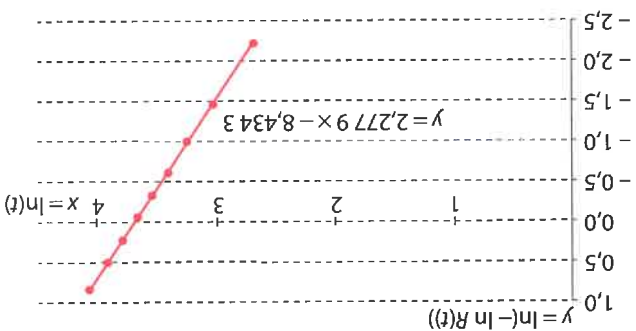 y = ln(– ln R(t))
1,0
0,5
0,0
– 0,5
– 1,0
– 1,5
– 2,0
– 2,5
1
2
3
4
x = ln(t)
y = 2,277 9 x – 8,434 3